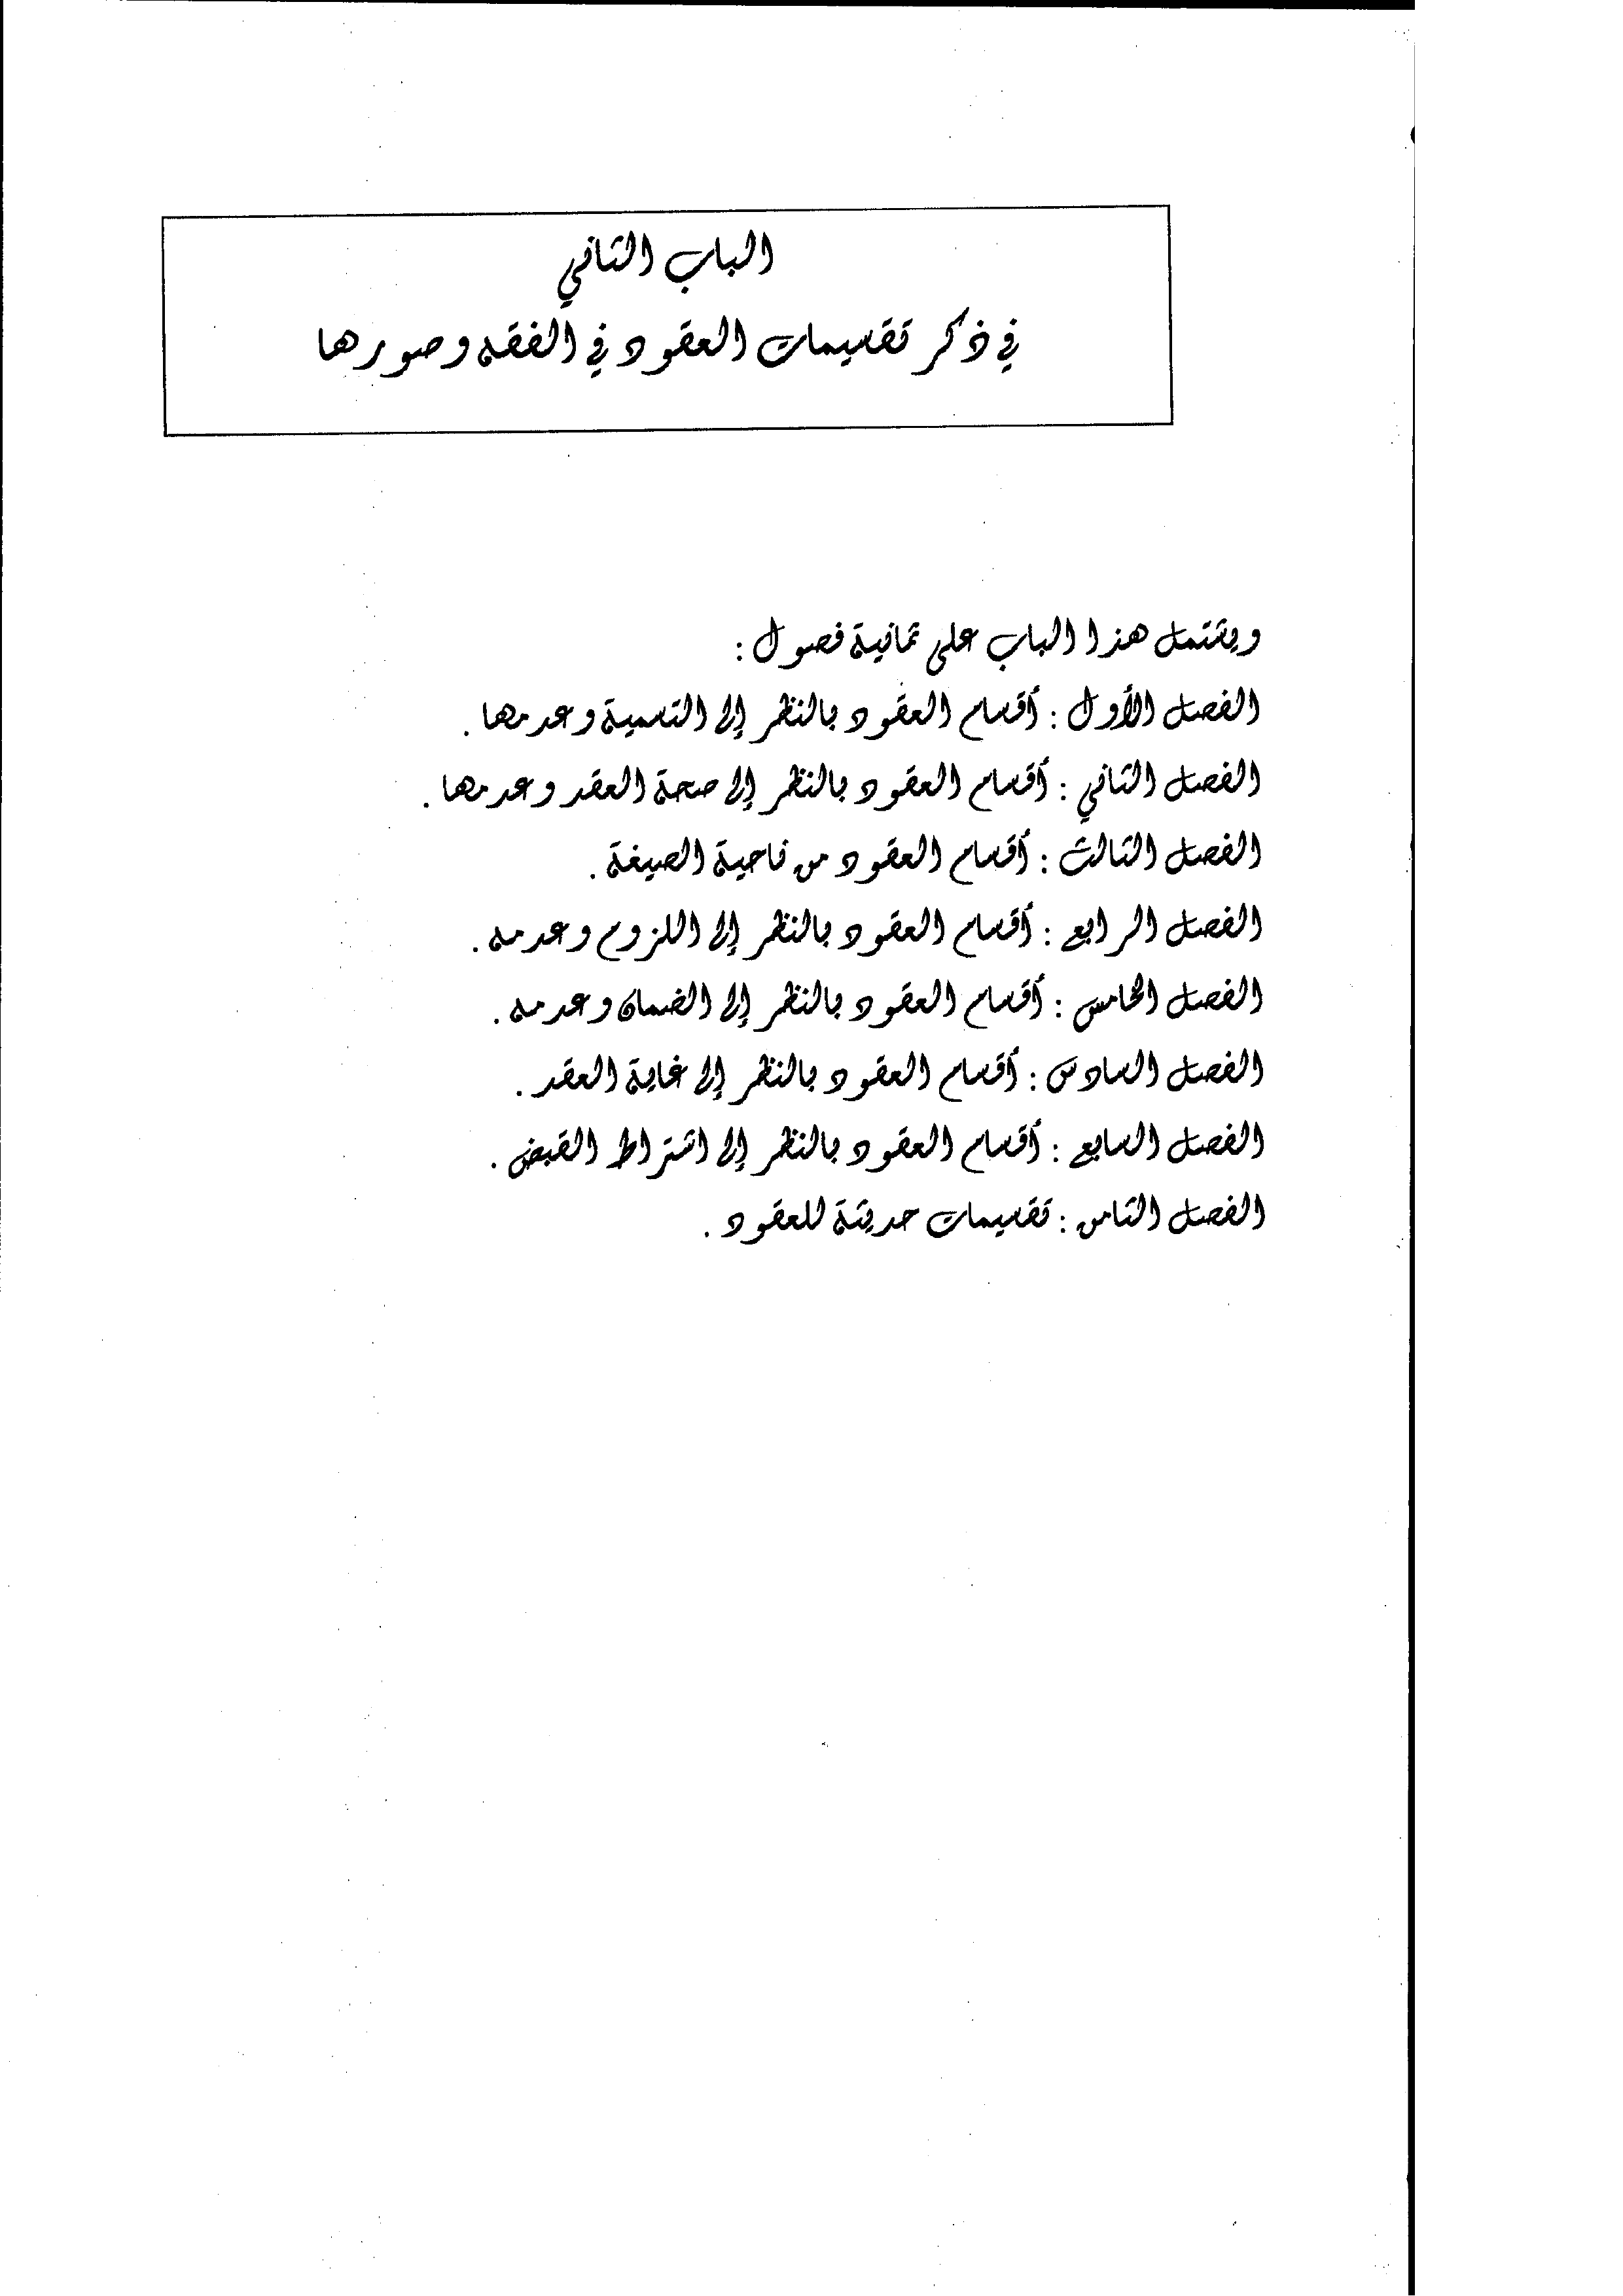 الباب الثاني
في ذكر تقسيمات العقود في الفقه وصورها
ويشتمل هذا الباب على ثمانية فصول :
الفصل الأول : أقسام العقود بالنظر إلى التسمية وعدمها .
الفصل الثاني : أقسام العقود بالنظر إلى صحة العقد وعدمها .
الفصل الثالث : أقسام العقود من ناحية الصيغة .
الفصل الرابع : أقسام العقود بالنظر إلى اللزوم وعدمه .
الفصل الخامس : أقسام العقود بالنظر إلى الضمان وعدمه .
الفصل السادس : أقسام العقود بالنظر إلى غاية العقد .
الفصل السابع : أقسام العقود بالنظر إلى اشتراط القبض .
الفصل الثامن : تقسيمات حديثة للعقود .